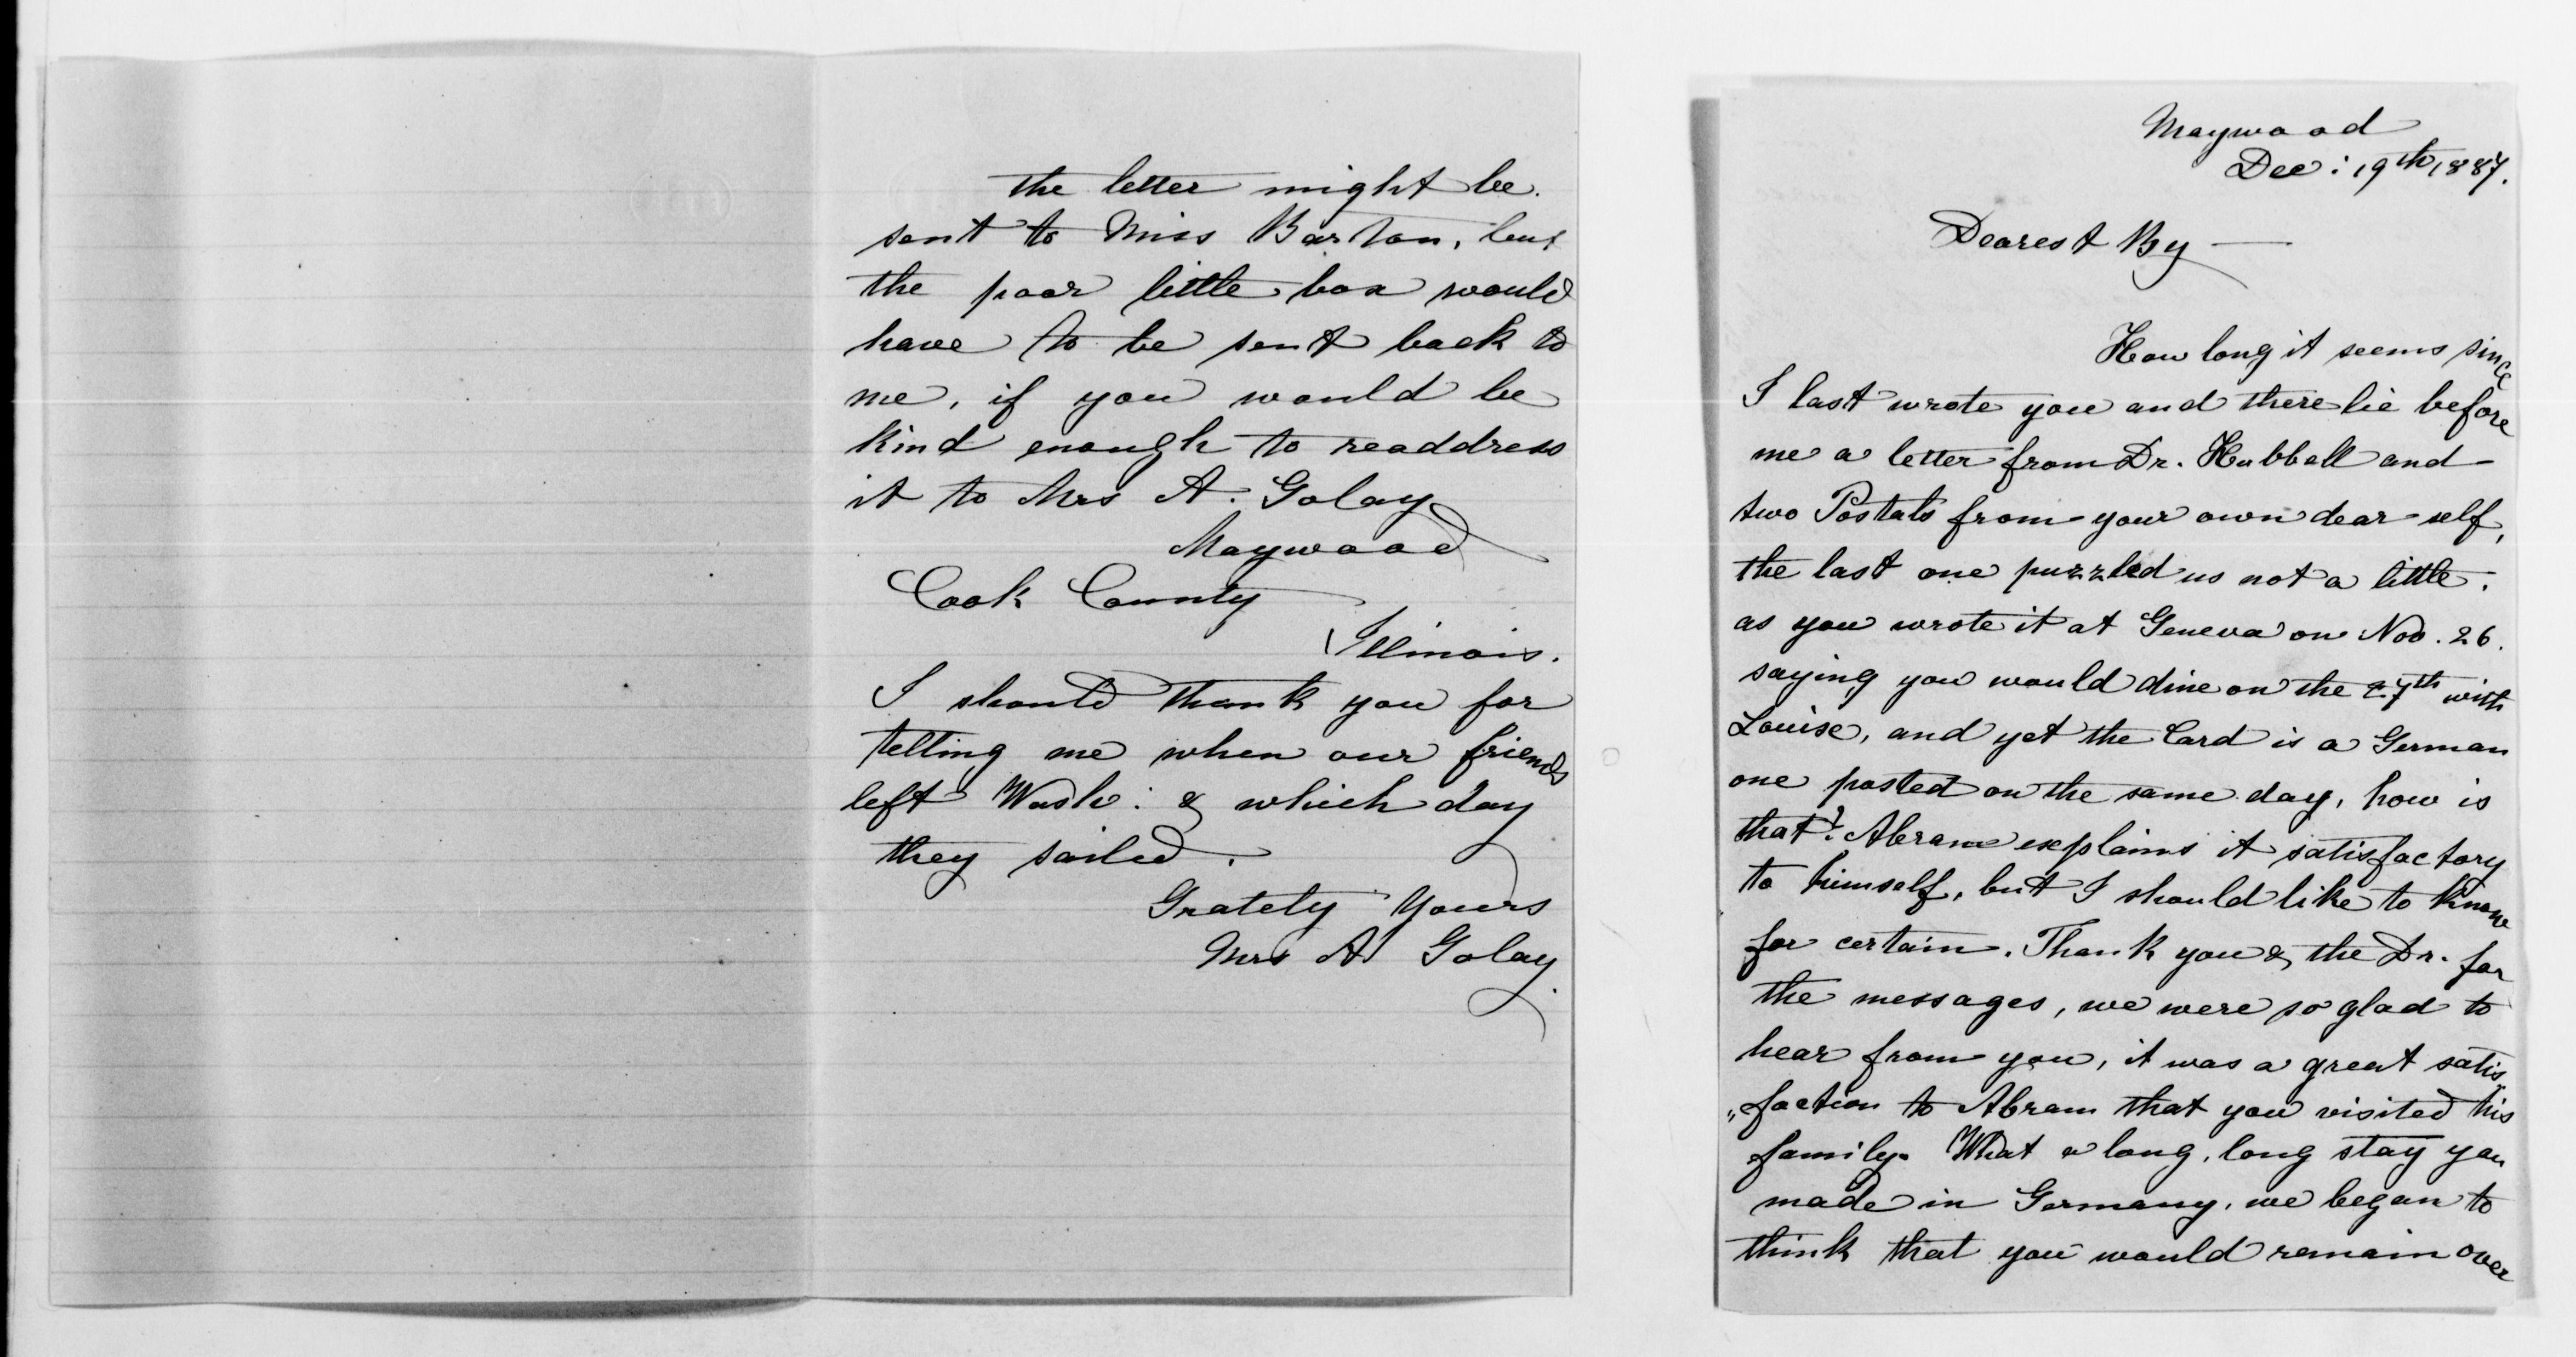 the letter might be.
sent to Miss Barton, but
the poor little box would
have to be sent back to
me, if you would be
kind enough to readdress
it to Mrs A. Golay
Maywood
Cook County
Illinois.
I should thank you for
telling me when our friends
left Wash: & which day
they sailed.
Grately Yours
Mrs A Golay.
Maywood
Dec: 19th 1887.
Dearest By —
How long it seems since
I last wrote you and there lie before
me a letter from Dr. Hubbell and
two Postals from your own dear self,
the last one puzzled us not a little.
as you wrote it at Geneva on Nov. 26.
saying you would dine on the 27th with
Louise, and yet the Card is a German
one posted on the same day, how is
that? Abram explains it satisfactory
to himself, but I should like to know
for certain. Thank you & the Dr. for
the messages, we were so glad to
hear from you, it was a great satis
"faction to Abram that you visited his
family. What a long, long stay you
made in Germany, we began to
think that you would remain over